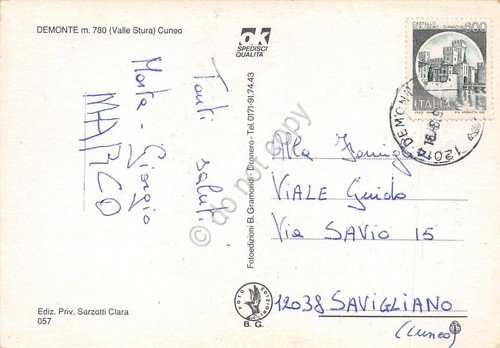 DEMONTE m. 780 (Valle Stura) Cuneo
Tanti saluti
Marta - Giorgio
MARCO
Ediz. Priv. Sarzotti Clara
057
ak
SPEDISCI
QUALITÀ
Fotoedizioni B. Gramondi - Dronero - Tel. 0171-91.74.43
FOTO EDIZIONI
B. G.
600
ITALIA
12014 DEMONTE
Alla Famiglia
VIALE Guido
Via SAVIO 15
12038 SAVIGLIANO
(Cuneo)
do not copy